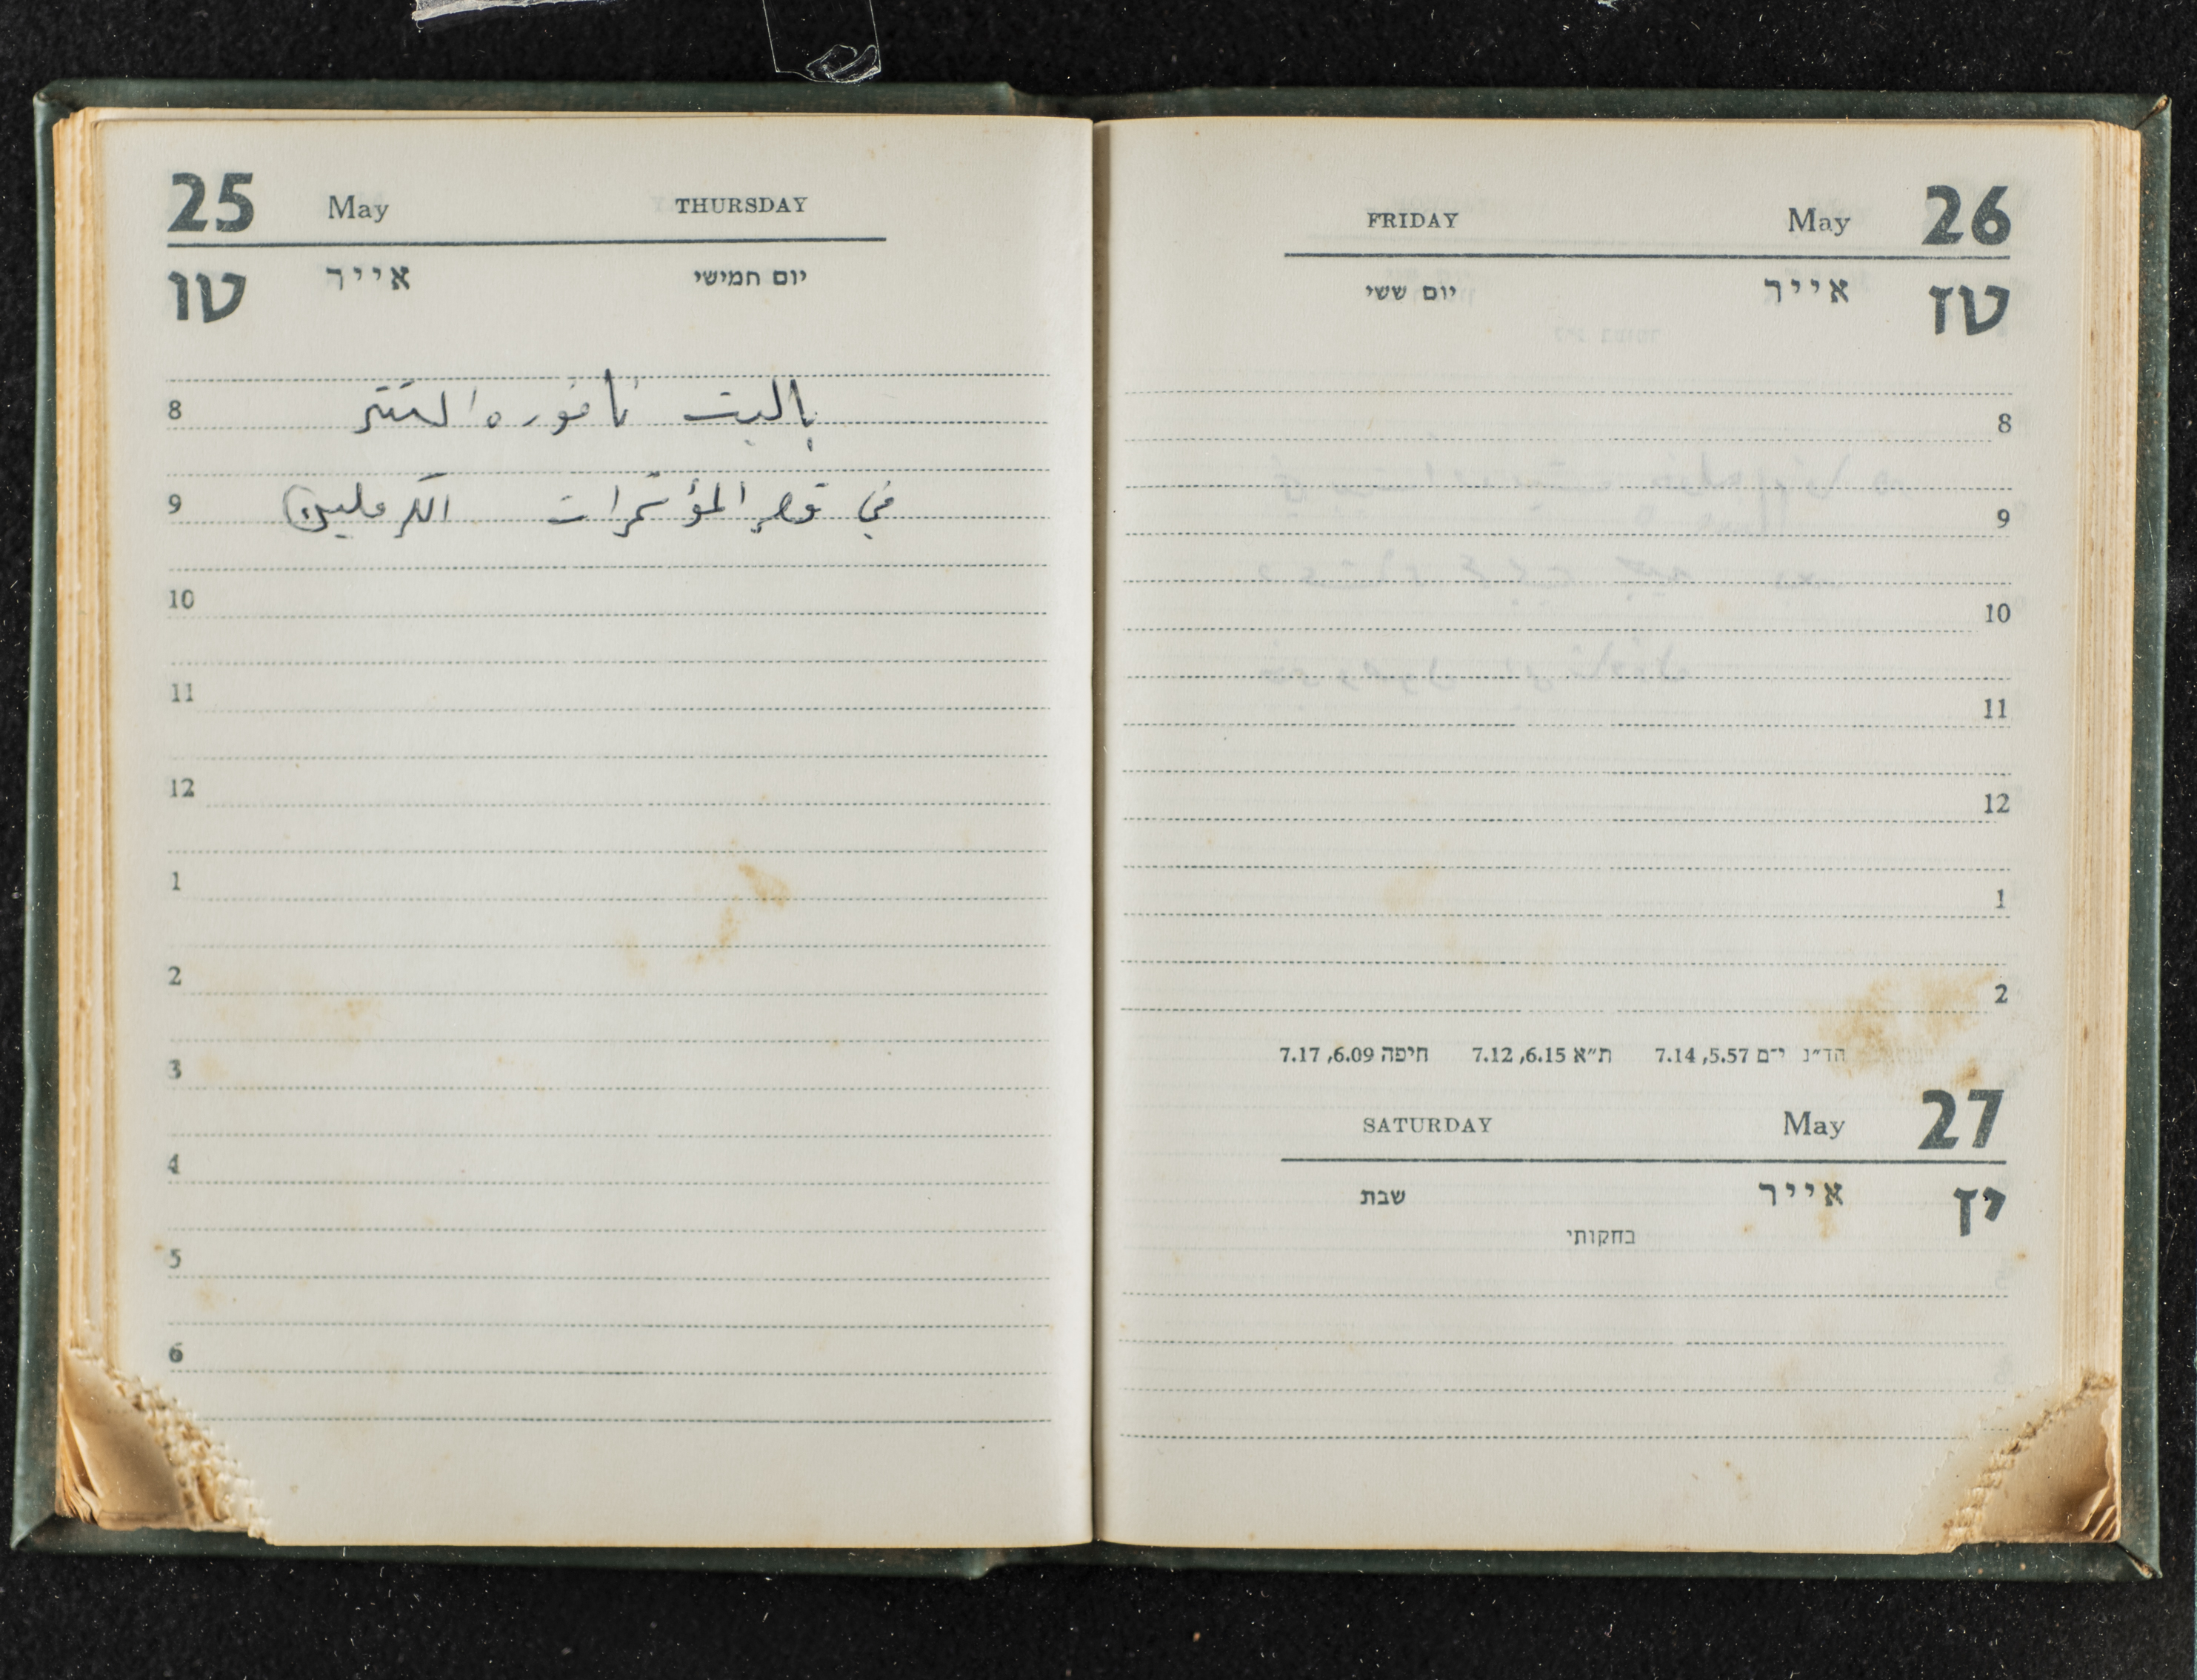 25 May THURSDAY
טו אייר יום חמישי
8 باليت نافوره
9 في قصر المؤتمرات الكرملين)
10
11
12
1
2
3
4
5
6
FRIDAY May 26
יום ששי אייר טז
8
9
10
11
12
1
2
הד״נ י־ם 5.57, 7.14 ת״א 6.15, 7.12 חיפה 6.09, 7.17
SATURDAY May 27
שבת אייר יז
בחקותי